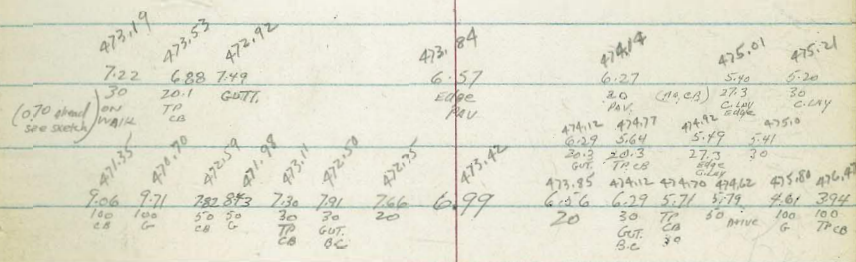 473.19 473.53 472.92 473.84 474.14 475.01 475.21
7.22 6.88 7.49 6.57 6.27 5.40 5.20
30 20.1 GUTT. Edge 20 (NO, CB) 27.3 30
(0.70 ahead see sketch) ON WALK TP CB PAV PAV. C.LNY Edge C.LNY
474.12 474.77 474.92 475.0
6.29 5.64 5.49 5.41
20.3 20.3 27.3 30
GUT. TP CB Edge C.LNY
471.35 470.70 472.59 471.98 473.11 472.50 472.75 473.42 473.85 474.12 474.70 474.62 475.80 476.47
9.06 9.71 7.82 8.43 7.30 7.91 7.66 6.99 6.56 6.29 5.71 5.79 4.61 3.94
100 100 50 50 30 30 20 20 30 TP 50 Drive 100 100
CB G CB G TP CB GUT. B.C GUT. B.C CB 30 G TP CB